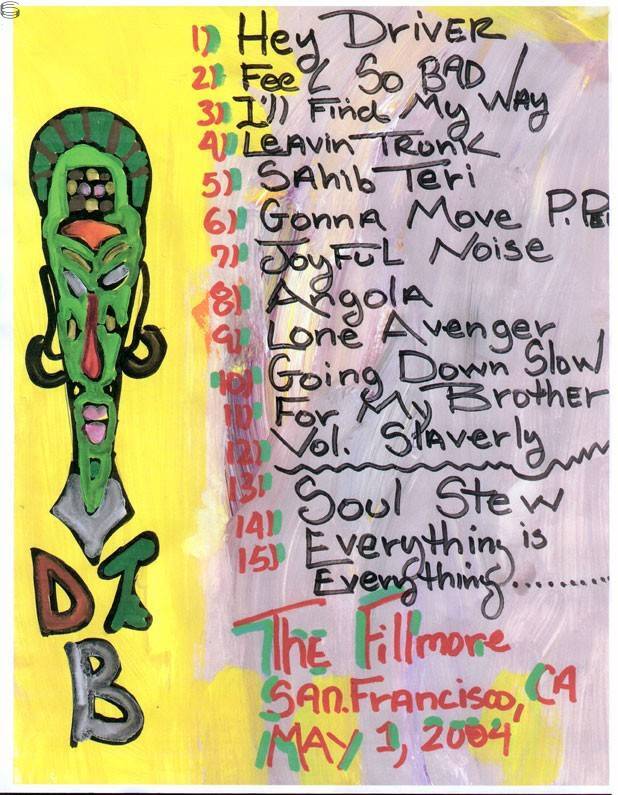 1) Hey Driver
2) Feel So BAD
3) I'll Find My WAY
4) LeAvin TRunk
5) SAhib Teri
6) GonnA Move P.P.
7) JoyFuL Noise
8) AngolA
9) Lone Avenger
10) Going Down Slow
11) For My BrothER
12) Vol. SlAverly
13) Soul Stew
14) Everything is
15) Everything..........
DTB
The Fillmore
SAn.FrAncisco, CA
MAY 1, 2004